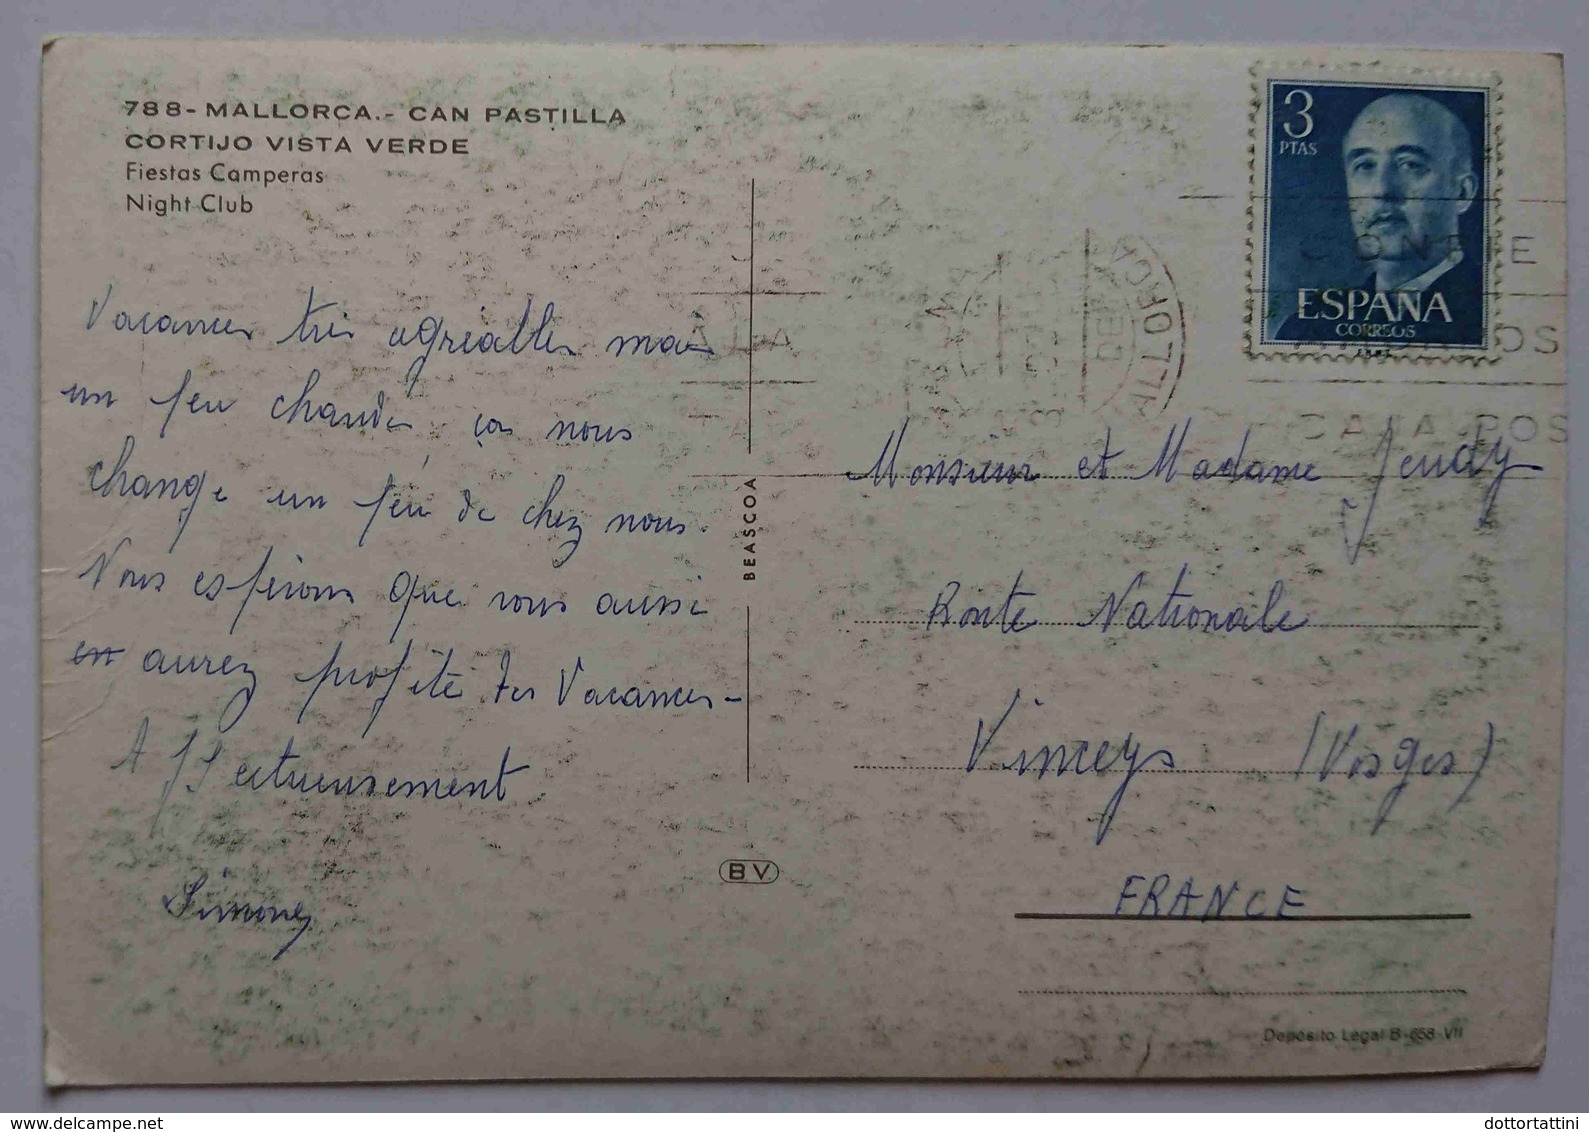 788- MALLORCA.- CAN PASTILLA
CORTIJO VISTA VERDE
Fiestas Camperas
Night Club
Vacances très agréables mais
un peu chaudes, ça nous
change un peu de chez nous.
Nous espérons que vous aussi
en aurez profité des Vacances-
Affectueusement
Simone
BEASCOA
BV
3
PTAS
ESPAÑA
CORREOS
Monsieur et Madame Jeudy
Route Nationale
Vincey (Vosges)
FRANCE
Deposito Legal B-658-VII
delcampe.net
dottortattini